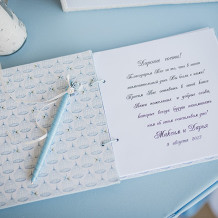 Дорогие гости!
Благодарим Вас за то, что в этот
знаменательный день Вы были с нами!
Просим Вас оставить в этой книге
Ваши пожелания и добрые слова,
которые всегда будут напоминать
нам об этом счастливом дне!
Максим и Дарья
августа